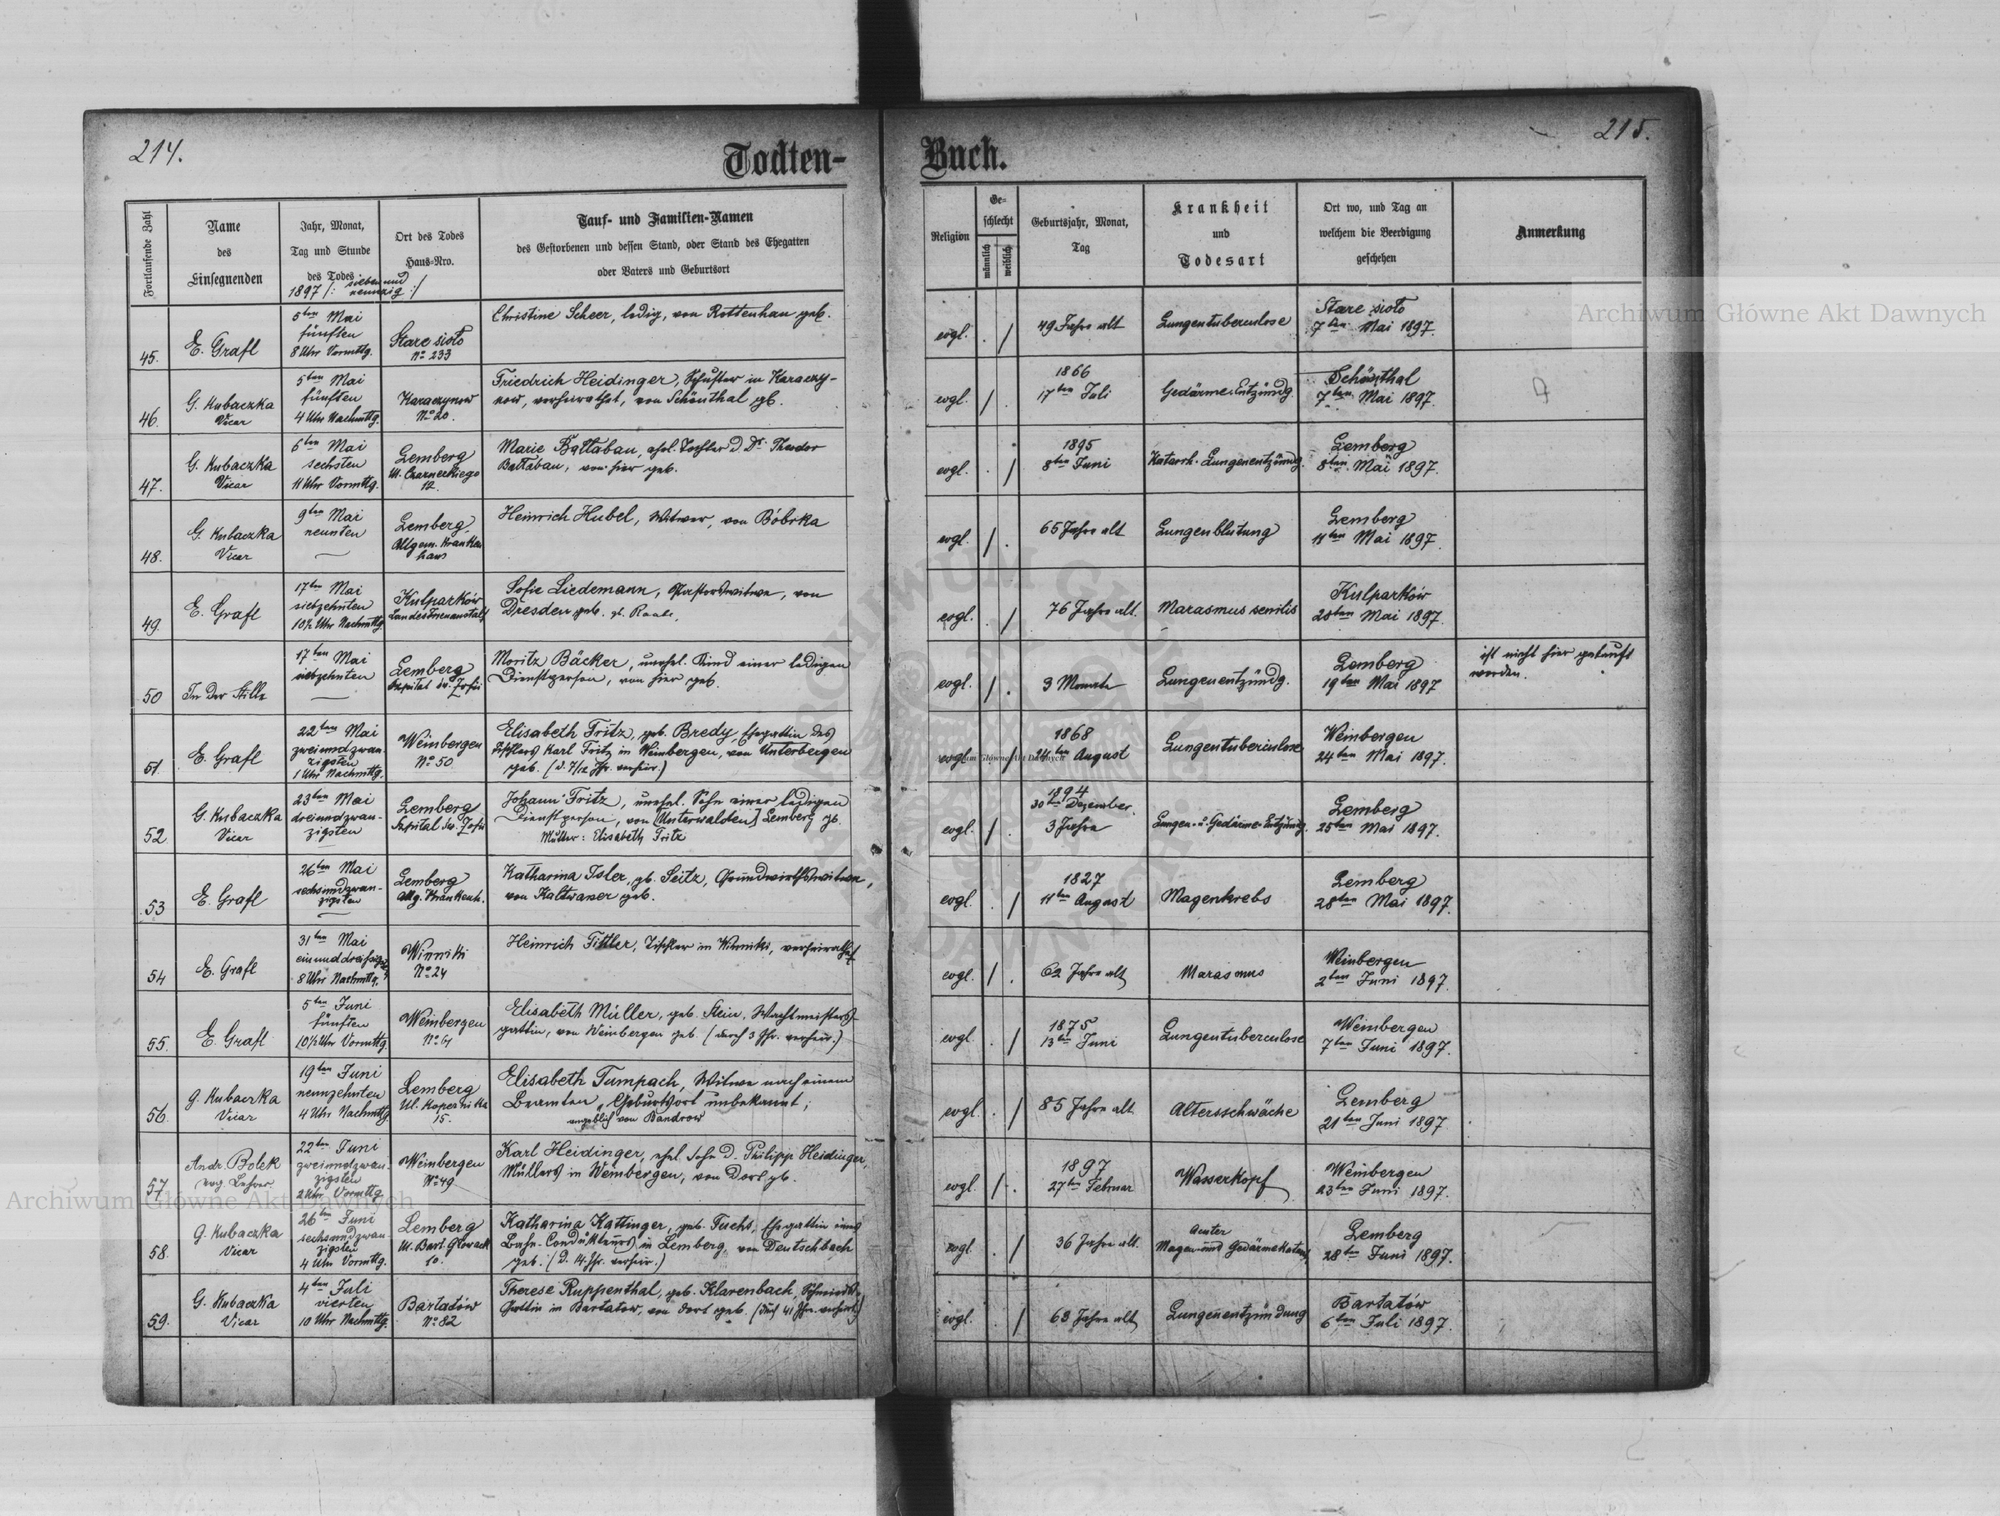 214.
Todten-
Fortlaufende Zahl
Name
des
Einsegnenden
Jahr, Monat,
Tag und Stunde
des Todes
1897 /: sieben und
neunzig :/
Ort des Todes
Haus-Nro.
Tauf- und Familien-Namen
des Gestorbenen und dessen Stand, oder Stand des Ehegatten
oder Vaters und Geburtsort
45.
E. Grafl
5ten Mai
fünften
8 Uhr Vormttg.
Stare sioło
No 233
Christine Scheer, ledig, von Rottenhan geb.
46.
G. Kubaczka
Vicar
5ten Mai
fünften
4 Uhr Nachmttg.
Karaczynow
No 20.
Friedrich Heidinger, Schuster in Karaczy-
now, verheirathet, von Schönthal gb.
47.
G. Kubaczka
Vicar
6ten Mai
sechsten
11 Uhr Vormttg.
Lemberg
Ul. Czarneckiego
12.
Marie Bałłaban, ehel. Tochter d. Dr. Theodor
Bałłaban, von hier geb.
48.
G. Kubaczka
Vicar
9ten Mai
neunten
Lemberg
Allgem. Kranken
haus
Heinrich Hubel, Witwer, von Bóbrka
49.
E. Grafl
17ten Mai
siebzehnten
10½ Uhr Nachmttg
Kulparków
Landes Irrenanstalt
Sofie Liedemann, Pastorswitwe, von
Dresden geb.
50
In der Stille
17ten Mai
siebzehnten
Lemberg
Szpital św. Zofii
Moritz Bäcker, unehel. Kind einer ledigen
Dienstperson, von hier geb.
51.
E. Grafl
22ten Mai
zweiundzwan-
zigsten
1 Uhr Nachmttg.
Weinbergen
No 50
Elisabeth Fritz, geb. Bredy, Ehegattin des
Tischlers Karl Fritz in Weinbergen, von Unterbergen
geb. (d. 7/12 Jhr. verheir.)
52
G. Kubaczka
Vicar
23ten Mai
dreiundzwan-
zigsten
Lemberg
Szpital św. Zofii
Johann Fritz, unehel. Sohn einer ledigen
Dienstperson, von [Unterwalden] Lemberg gb.
Mutter: Elisabeth Fritz
53
E. Grafl
26ten Mai
sechsundzwan-
zigsten
Lemberg
Allg. Krankenh.
Katharina Isler, gb. Seitz, Grundwirthswitwe,
von Kaltwaser geb.
54
E. Grafl
31ten Mai
einunddreißigsten
8 Uhr Nachmttg.
Winniki
No 24
Heinrich Tittler, Tischler in Winniki, verheirathet
55.
E. Grafl
5ten Juni
fünften
10½ Uhr Vormttg
Weinbergen
No 61
Elisabeth Müller, geb. Stein, Wachtmeisters-
gattin, von Weinbergen geb. (durch 3 Jhr. verheir.)
56.
G. Kubaczka
Vicar
19ten Juni
neunzehnten
4 Uhr Nachmttg.
Lemberg
Ul. Kopernika
15.
Elisabeth Tumpach, Witwe nach einem
Beamten, Geburtsort unbekannt;
angeblich von Bandrow
57.
Andr. Bolek
evg. Lehrer
22ten Juni
zweiundzwan-
zigsten
2 Uhr Vormttg
Weinbergen
No 49
Karl Heidinger, ehel. Sohn d. Philipp Heidinger,
Müllers in Weinbergen, von Dort gb.
58.
G. Kubaczka
Vicar
26ten Juni
sechsundzwan
zigsten
4 Uhr Vormttg.
Lemberg
Ul. Bart. Głowack
10.
Katharina Kattinger, geb. Fuchs, Ehegattin eines
Bahn-Condukteurs in Lemberg, von Deutschbach
geb. (d. 14 Jhr. verheir.)
59.
G. Kubaczka
Vicar
4ten Juli
vierten
10 Uhr Nachmttg.
Bartatów
No 82
Therese Ruppenthal, geb. Klarenbach, Schmieds-
Gattin in Bartatow, von dort geb. (durch 41 Jhr. verheir.)
215.
Buch.
Religion
Ge-
schlecht
männlich
weiblich
Geburtsjahr, Monat,
Tag
Krankheit
und
Todesart
Ort wo, und Tag an
welchem die Beerdigung
geschehen
Anmerkung
evgl. . /
49 Jahre alt
Lungentuberculose
Stare sioło
7ten Mai 1897.
evgl. / .
1866
17ten Juli
Gedärme-Entzündg.
Schönthal
7ten Mai 1897.
evgl. . /
1895
8ten Juni
Katarrh. Lungenentzündg.
Lemberg
8ten Mai 1897.
evgl. / .
65 Jahre alt
Lungenblutung
Lemberg
11ten Mai 1897.
evgl. . /
76 Jahre alt.
Marasmus senilis
Kulparków
20ten Mai 1897.
evgl. / .
3 Monate
Lungenentzündg.
Lemberg
19ten Mai 1897
ist nicht hier getauft
worden.
evgl. . /
1868
24ten August
Lungentuberculose
Weinbergen
24ten Mai 1897.
evgl. / .
1894
30ten Dezember
3 Jahre
Lungen- u. Gedärme-Entzündg.
Lemberg
25ten Mai 1897.
evgl. . /
1827
11ten August
Magenkrebs
Lemberg
28ten Mai 1897.
evgl. / .
62 Jahre alt
Marasmus
Weinbergen
2ten Juni 1897.
evgl. . /
1875
13ten Juni
Lungentuberculose
Weinbergen
7ten Juni 1897.
evgl. . /
85 Jahre alt
Altersschwäche
Lemberg
21ten Juni 1897.
evgl. / .
1897
27ten Februar
Wasserkopf
Weinbergen
23ten Juni 1897.
evgl. . /
36 Jahre alt.
Acuter
Magen und Gedärmekatarrh
Lemberg
28ten Juni 1897.
evgl. . /
63 Jahre alt
Lungenentzündung
Bartatów
6ten Juli 1897.
Archiwum Główne Akt Dawnych
Archiwum Główne Akt Dawnych